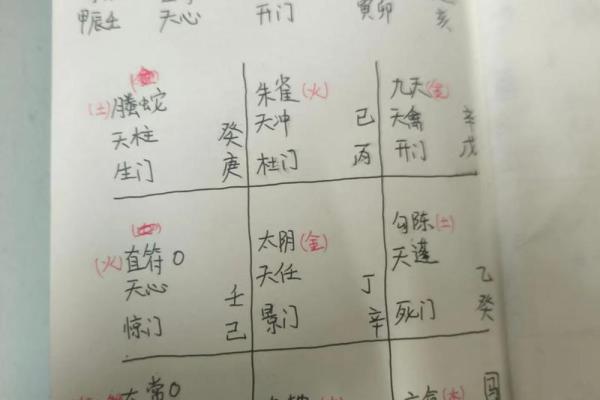 甲辰壬 天心 开门 寅卯 亥
(土)螣蛇
天柱 癸
生门 庚
朱雀(火)
天冲 己
杜门 丙
九天(金)
天禽 辛
开门 戊
(火)直符 0
天心 壬
惊门 己
太阴(金)
天任 丁
景门 辛
勾陈(土)
天蓬 乙
死门 癸
太常0
六合(木)